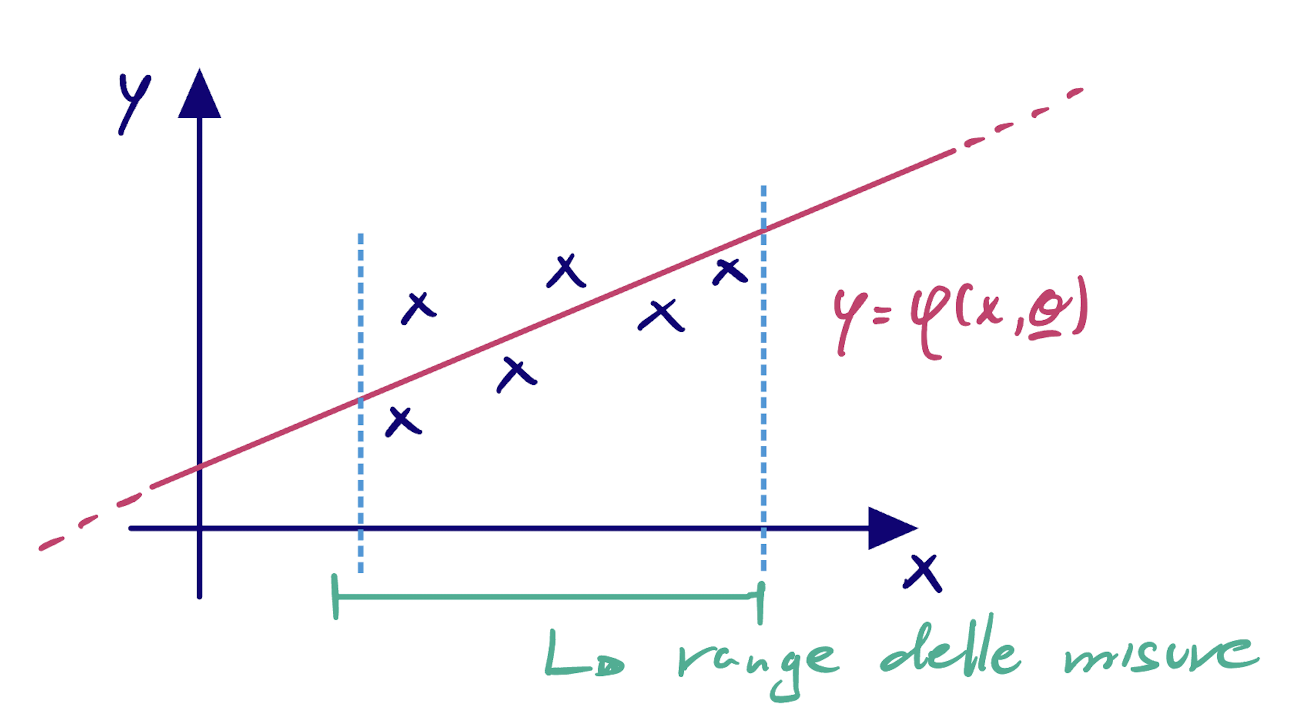 y
y = φ(x, θ)
x
↳ range delle misure